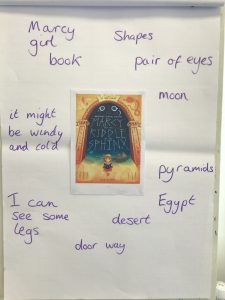 Marcy
girl
book
Shapes
pair of eyes
moon
it might
be windy
and cold
MARCY
RIDDLE
SPHINX
pyramids
I can
see some
legs
Egypt
desert
door way